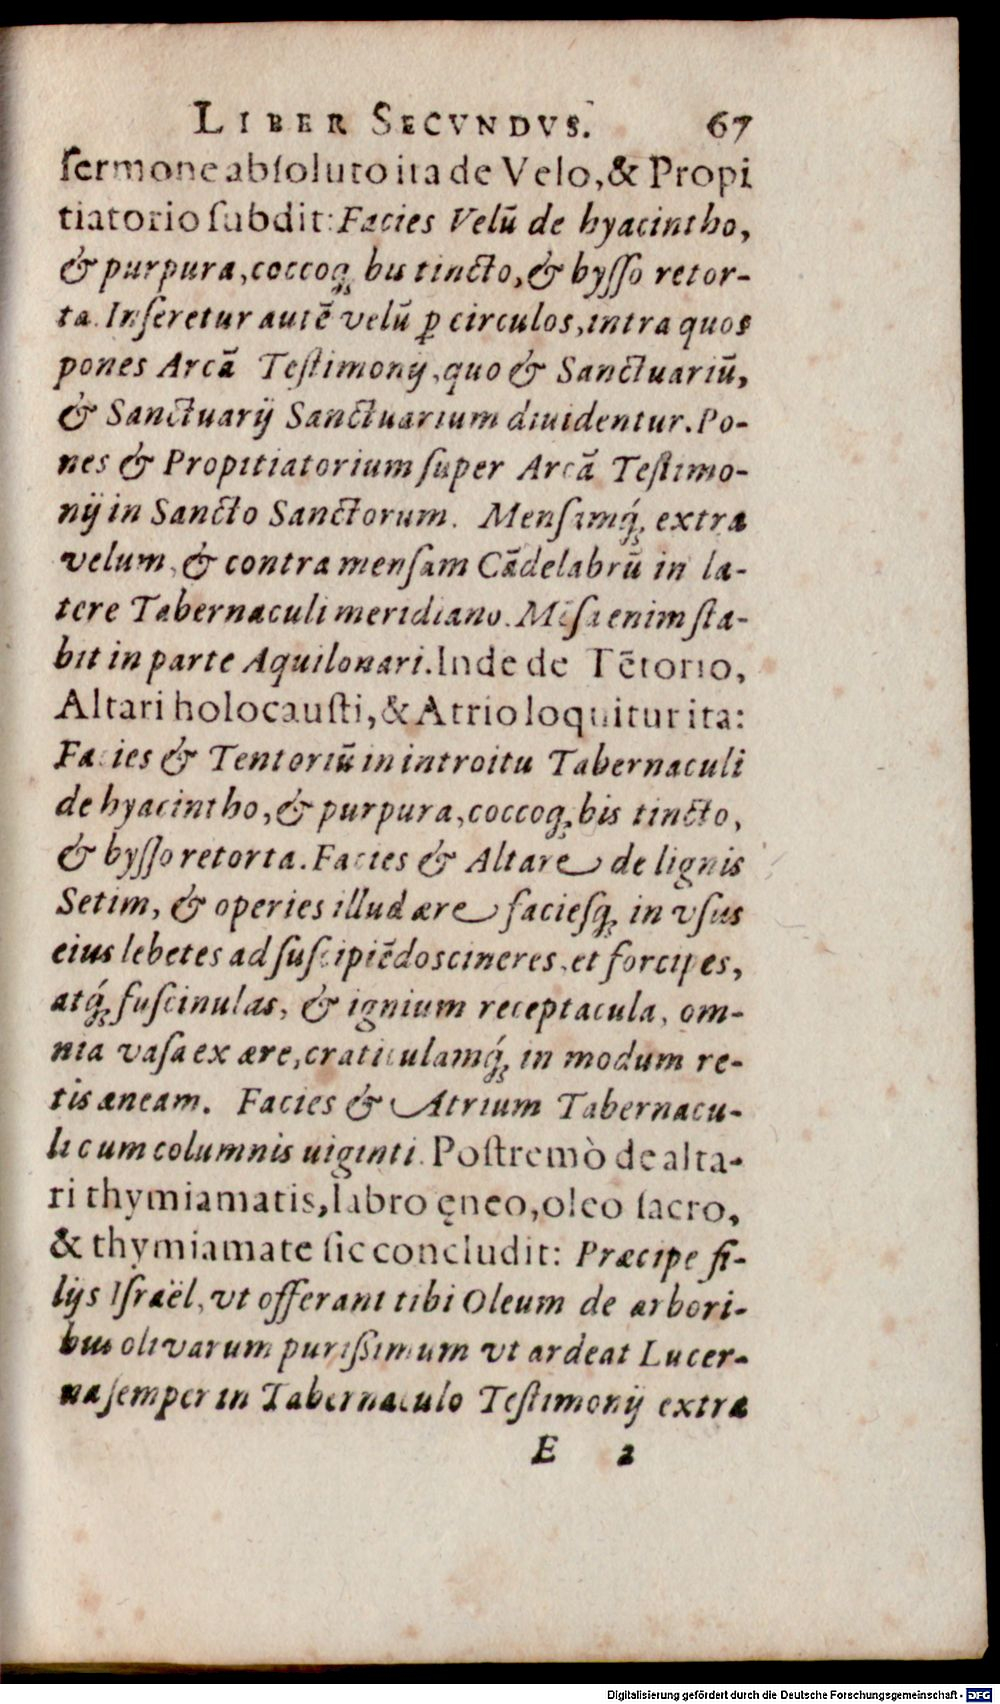 LIBER SECVNDVS. 67
ſermone abſoluto ita de Velo, & Propi
tiatorio ſubdit: Facies Velũ de hyacintho,
& purpura, coccoq́; bis tincto, & byſſo retor-
ta. Inſeretur autẽ velũ ꝑ circulos, intra quos
pones Arcã Teſtimonij, quo & Sanctuariũ,
& Sanctuarij Sanctuarium diuidentur. Po-
nes & Propitiatorium ſuper Arcã Teſtimo-
nij in Sancto Sanctorum. Menſamq́; extra
velum, & contra menſam Cãdelabrũ in la-
tere Tabernaculi meridiano. Mẽſa enim ſta-
bit in parte Aquilonari. Inde de Tẽtorio,
Altari holocauſti, & Atrio loquitur ita:
Facies & Tentoriũ in introitu Tabernaculi
de hyacintho, & purpura, coccoq; bis tincto,
& byſſo retorta. Facies & Altare de lignis
Setim, & operies illud ære facieſq; in vſus
eius lebetes ad ſuſcipiẽdos cineres, et forcipes,
atq́; fuſcinulas, & ignium receptacula, om-
nia vaſa ex ære, craticulamq́; in modum re-
tis æneam. Facies & Atrium Tabernacu-
li cum columnis uiginti. Poſtremò de alta-
ri thymiamatis, labro ęneo, oleo ſacro,
& thymiamate ſic concludit: Præcipe fi-
lijs Iſraël, vt offerant tibi Oleum de arbori-
bus olivarum puriſsimum vt ardeat Lucer-
na ſemper in Tabernaculo Teſtimonij extra
E 2
Digitalisierung gefördert durch die Deutsche Forschungsgemeinschaft - DFG